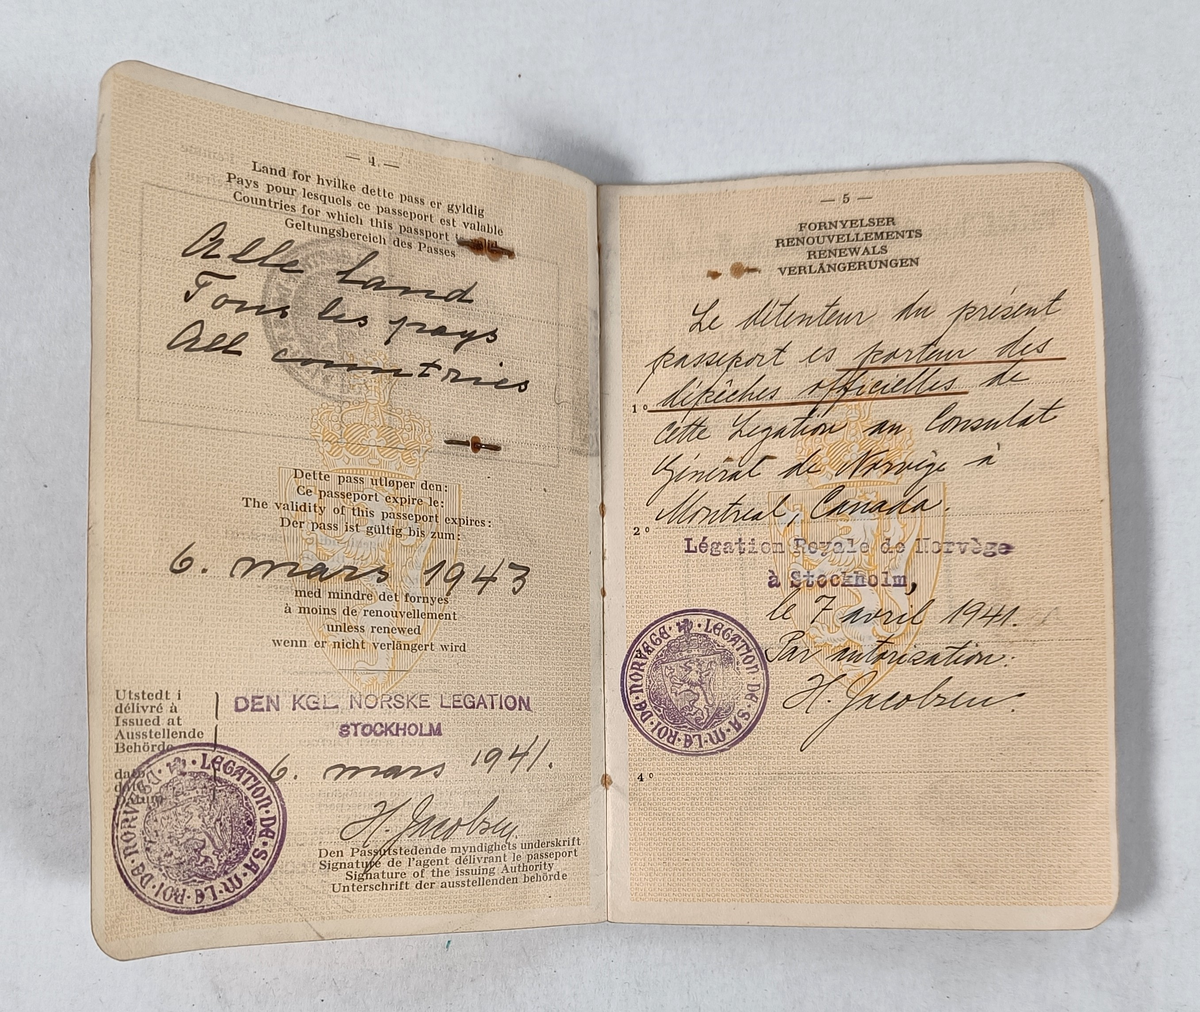 — 4. —
Land for hvilke dette pass er gyldig
Pays pour lesquels ce passeport est valable
Countries for which this passport is valid
Geltungsbereich des Passes
Alle land
Tous les pays
All countries
Dette pass utløper den:
Ce passeport expire le:
The validity of this passport expires:
Der pass ist gültig bis zum:
6. mars 1943
med mindre det fornyes
à moins de renouvellement
unless renewed
wenn er nicht verlängert wird
Utstedt i
délivré à
Issued at
Ausstellende
Behörde
DEN KGL. NORSKE LEGATION
STOCKHOLM
6. mars 1941.
LEGATION·DE·S·A·M·LE·ROI·DE·NORVEGE
H. Jacobsen.
Den Passutstedende myndighets underskrift
Signature de l'agent délivrant le passeport
Signature of the issuing Authority
Unterschrift der ausstellenden behörde
— 5 —
FORNYELSER
RENOUVELLEMENTS
RENEWALS
VERLÄNGERUNGEN
Le détenteur du présent
passeport es porteur des
1° dépêches officielles de
cette Legation au Consulat
Général de Norvège à
Montreal, Canada.
2°
Légation Royale de Norvège
à Stockholm,
le 7 avril 1941.
Par autorisation:
H. Jacobsen.
LEGATION·DE·S·A·M·LE·ROI·DE·NORVEGE
4°